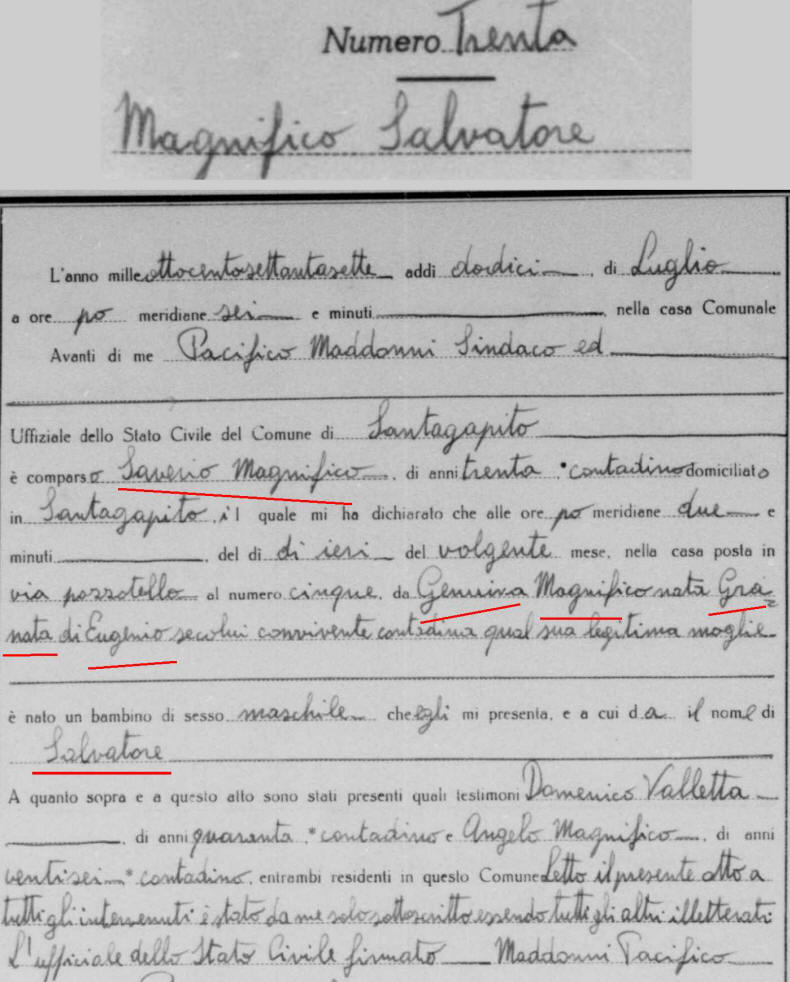 Numero Trenta
Magnifico Salvatore
L'anno mille ottocentosettantasette addì dodici, di Luglio
a ore po meridiane sei e minuti, nella casa Comunale
Avanti di me Pacifico Maddonni Sindaco ed
Uffiziale dello Stato Civile del Comune di Santagapito
è comparso Saverio Magnifico, di anni trenta, contadino domiciliato
in Santagapito, il quale mi ha dichiarato che alle ore po meridiane due e
minuti, del dì di ieri del volgente mese, nella casa posta in
via pozzotello al numero cinque, da Genuiva Magnifico nata Gra=
nata di Eugenio secolui convivente contadina qual sua legitima moglie
è nato un bambino di sesso maschile che egli mi presenta, e a cui da il nome di
Salvatore
A quanto sopra e a questo atto sono stati presenti quali testimoni Domenico Valletta
, di anni quaranta, contadino e Angelo Magnifico, di anni
ventisei contadino, entrambi residenti in questo Comune Letto il presente atto a
tutti gli intervenuti è stato da me solo sottoscritto essendo tutti gli altri illetterati
L'ufficiale dello Stato Civile firmato Maddonni Pacifico